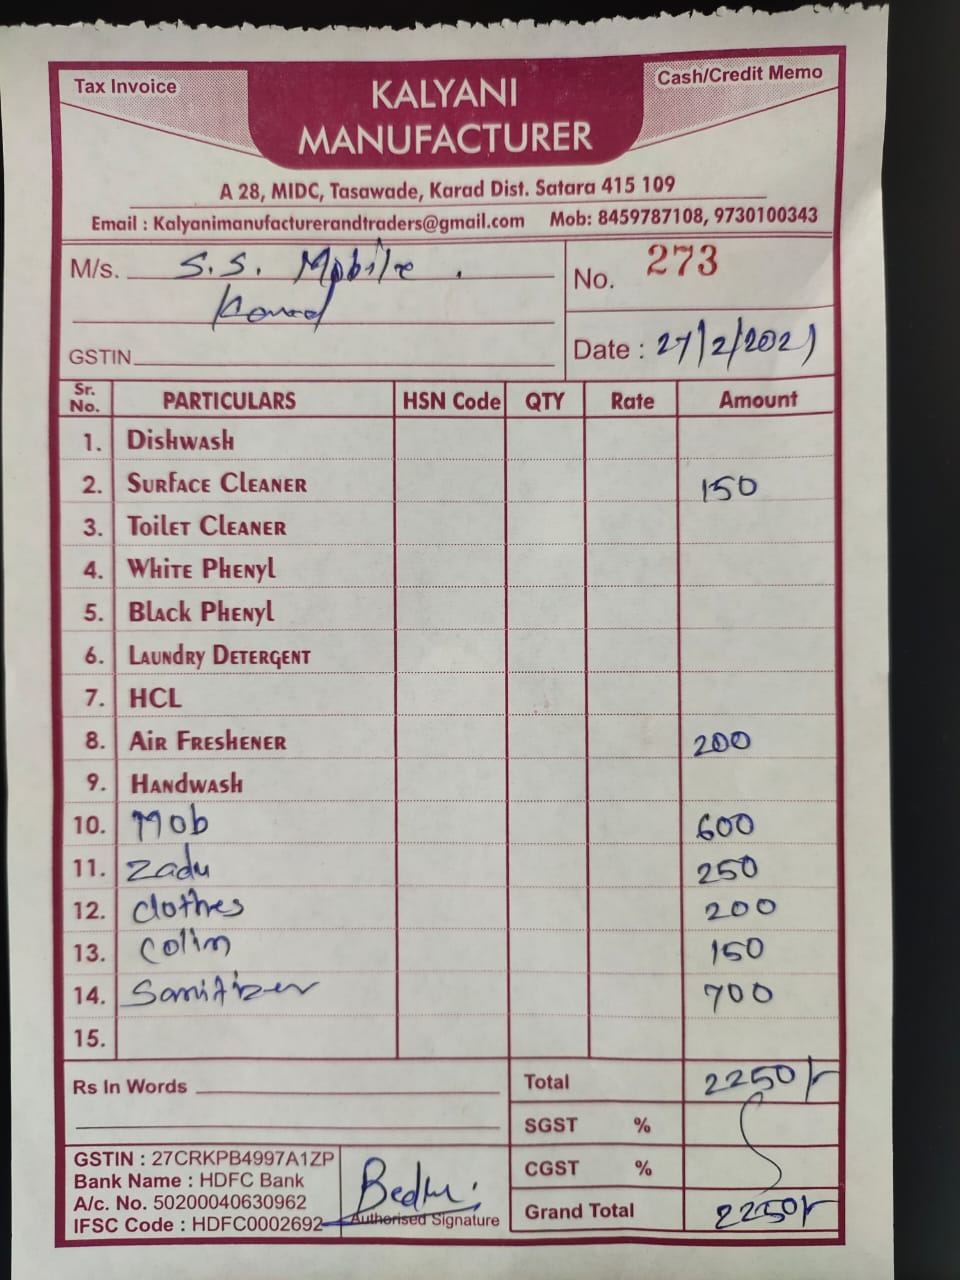 Tax Invoice
Cash/Credit Memo
KALYANI
MANUFACTURER
A 28, MIDC, Tasawade, Karad Dist. Satara 415 109
Email : Kalyanimanufacturerandtraders@gmail.com Mob: 8459787108, 9730100343
M/s. S.S. Mobile
Karad
No. 273
GSTIN
Date : 27/2/2021
Sr. No. PARTICULARS HSN Code QTY Rate Amount
1. Dishwash
2. Surface Cleaner 150
3. Toilet Cleaner
4. White Phenyl
5. Black Phenyl
6. Laundry Detergent
7. HCL
8. Air Freshener 200
9. Handwash
10. Mob 600
11. Zadu 250
12. Clothes 200
13. Colin 150
14. Sanitizer 700
15.
Rs In Words
Total 2250/-
SGST %
CGST %
Grand Total 2250/-
GSTIN : 27CRKPB4997A1ZP
Bank Name : HDFC Bank
A/c. No. 50200040630962
IFSC Code : HDFC0002692
Authorised Signature